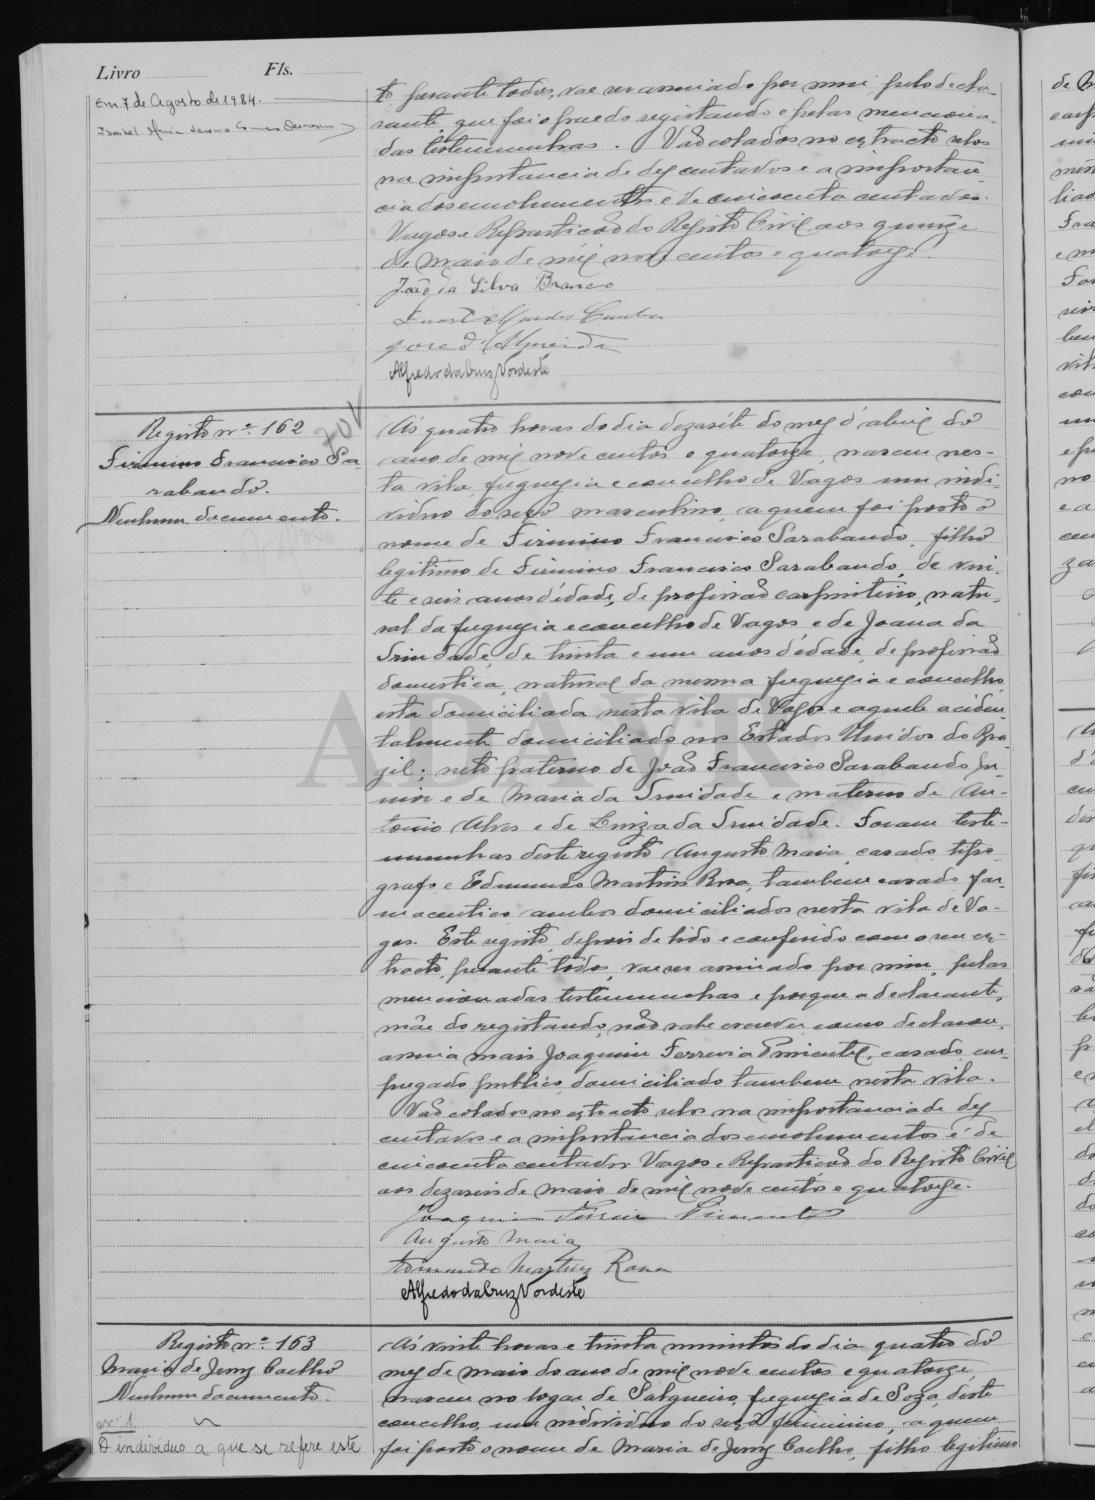 Livro Fls.
Em 7 de Agosto de 1984.
Isabel Maria
to perante todos, vae ser assinado por mim, pelo decla-
rante, que foi o pae do registando e pelas menciona-
das testemunhas. Vão colados no extracto selos
na importancia de dez centavos e a importan-
cia dos emolumentos é de cincoenta centavos.
Vagos e Repartição do Registo Civil aos quinze
de maio de mil nove centos e quatorze.
João da Silva Branco
Duarte Mendes Cunha
José d'Almeida
Alfredo da Cruz Nordeste
Registo nº 162
Firmino Francisco Sa-
rabando.
Nenhum documento.
Ás quatro horas do dia dezaséte do mez d'abril do
ano de mil nove centos e quatorze, nasceu nes-
ta vila, freguezia e concelho de Vagos um indi-
viduo do sexo masculino, a quem foi posto o
nome de Firmino Francisco Sarabando, filho
legitimo de Firmino Francisco Sarabando, de vin-
te e seis anos d'édade, de profissão carpinteiro, natu-
ral da freguezia e concelho de Vagos e de Joana da
Trindade, de trinta e um anos d'édade, de profissão
domestica, natural da mesma freguezia e concelho,
esta domiciliada nesta vila de Vagos e aquele aciden-
talmente domiciliado nos Estados Unidos do Bra-
zil; neto paterno de João Francisco Sarabando Ju-
nior e de Maria da Trindade e materno de An-
tonio Alves e de Luiza da Trindade. Foram teste-
munhas deste registo, Augusto Maia, casado, tipo-
grafo e Edmundo Martins Rosa, tambem casado, far-
maceutico, ambos domiciliados nesta vila de Va-
gos. Este registo, depois de lido e conferido com o seu ex-
tracto, perante todos, vae ser assinado por mim, pelas
mencionadas testemunhas e porque a declarante,
mãe do registando, não sabe escrever, como declarou,
assina mais Joaquim Ferreira Pimentel, casado, em-
pregado publico, domiciliado tambem nesta vila.
Vão colados no extracto selos na importancia de dez
centavos e a importancia dos emolumentos é de
cincoenta centavos. Vagos e Repartição do Registo Civil
aos dezaseis de maio de mil nove centos e quatorze.
Joaquim Ferreira Pimentel
Augusto Maia
Edmundo Martins Rosa
Alfredo da Cruz Nordeste
Registo nº 163
Maria de Jesus Coelho
Nenhum documento.
nº 1
O indivíduo a que se refere este
Ás vinte horas e trinta minutos do dia quatro do
mez de maio do ano de mil nove centos e quatorze,
nasceu no logar de Salgueiro, freguezia de Soza, deste
concelho, um individuo do sexo feminino, a quem
foi posto o nome de Maria de Jesus Coelho, filho legitimo